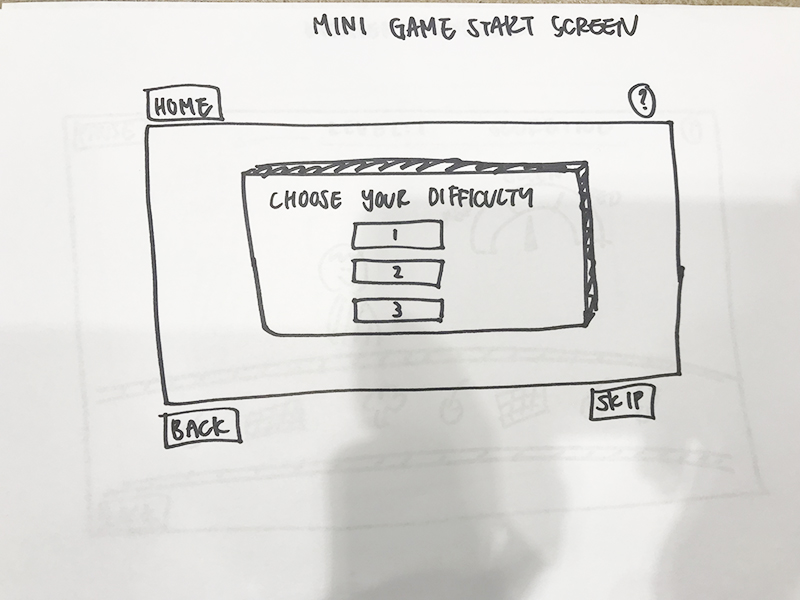 MINI GAME START SCREEN
HOME
?
CHOOSE YOUR DIFFICULTY
1
2
3
BACK
SKIP